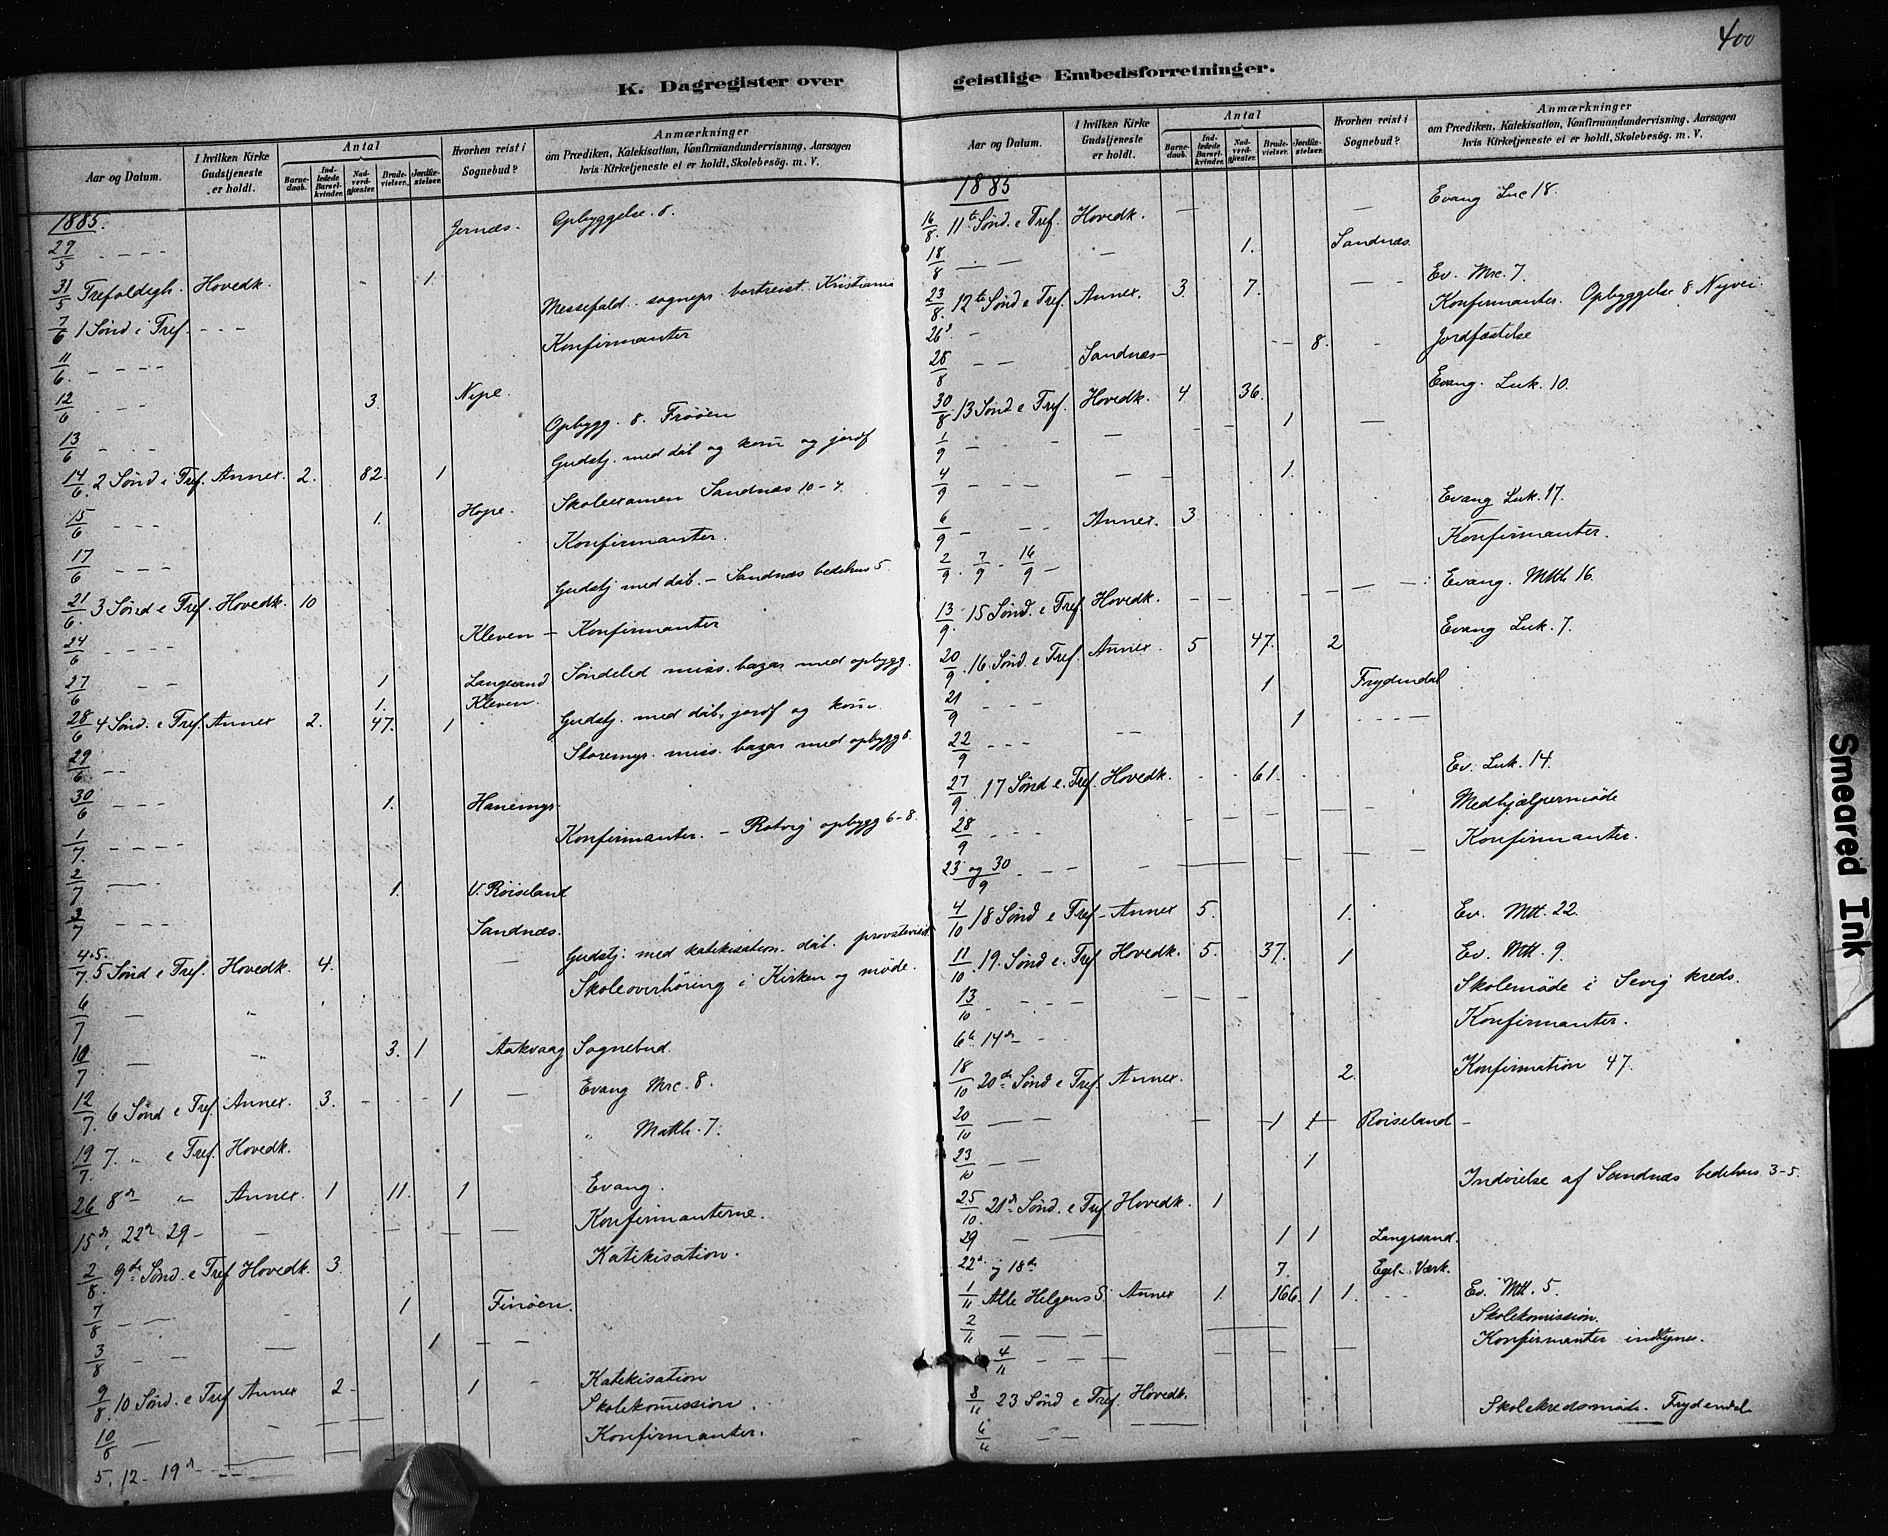 400
K. Dagregister over
Aar og Datum. | I hvilken Kirke Gudstjeneste er holdt. | Antal | Barnedaab. | Indledede Barselkvinder. | Nadverdgjæster. | Brudevielser. | Jordfæstelser. | Hvorhen reist i Sognebud? | Anmærkninger om Prædiken, Katekisation, Konfirmandundervisning, Aarsagen hvis Kirketjeneste ei er holdt, Skolebesøg. m. V.
1885.
29/5 - - - - Jernæs. Opbyggelse. 8.
31/5 Trefoldigh. Hovedk. - 1.
7/6 1 Sønd e Tref. - - - Messefald. sognepr. bortreist. Kristiania
11/6. - - - - Konfirmanter
12/6 - - - 3. Nipe.
13/6 - - - Opbygg. 8. Frøöen
14/6. 2 Sønd e Tref. Annex. 2. 82. 1 Gudstj. med dåb og kom og jordf
15/6 - - - 1. Hope. Skoleexamen Sandnæs 10-7.
17/6 - - - Konfirmanter.
21/6. 3 Sønd e Tref. Hovedk. 10 Gudstj med dåb. - Sandnæs bedehus 5
24/6 - - - Kleven - Konfirmanter
27/6 - - 1 Langsand Søndeled miss. bazar med opbygg.
1. Kleven.
28/6 4 Sønd. e Tref. Annex 2. 47. 1 Gudstj. med dåb, jordf og kom.
29/6 - - Storemyr. miss. bazar med opbygg 8.
30/6 - - - 1. Hanemyr.
1/7. - - - - Konfirmanter. - Rotvig opbygg 6-8.
2/7 1. V. Røiseland
3/7 - - - - Sandnæs.
4.5/7. 5 Sønd e Tref. Hovedk. 4. Gudstj. med katekisation. dåb. provstevisit.
6/7 - " Skoleoverhøring i Kirken og møde.
10/7 - " 3. 1 Aakvaag Sognebud.
12/7. 6 Sønd e Tref. Annex. 3. - - - 1 - Evang Mrc. 8.
19/7. 7. " e Tref. Hovedk. " Matth. 7.
26 8de " Annex. 1 11. 1 Evang.
15de, 22de 29 - Konfirmanterne.
2/8. 9de Sønd. e Tref Hovedk. 3. Katekisation.
7/8 - - - 1 Finöen.
3/8 - - 1 - -
9/8. 10 Sønd. e Tref Annex 2 - 1 Katekisation
10/8 - Skolekomission.
5, 12 - 19de - Konfirmanter.
geistlige Embedsforretninger.
Aar og Datum. | I hvilken Kirke Gudstjeneste er holdt. | Antal | Barnedaab. | Indledede Barselkvinder. | Nadverdgjæster. | Brudevielser. | Jordfæstelser. | Hvorhen reist i Sognebud? | Anmærkninger om Prædiken, Katekisation, Konfirmandundervisning, Aarsagen hvis Kirketjeneste ei er holdt, Skolebesøg. m. V.
1885
16/8. 11te Sønd. e Tref. Hovedk. - Evang Luc 18.
18/8 - - - 1. Sandnæs.
23/8. 12te Sønd e Tref. Annex. 3. 7. Ev. Mrc. 7.
26. - Konfirmanter. Opbyggelse 8 Nyvei
28/8 - - Sandnæs - 8. Jordfæstelse
30/8 13 Sønd e Tref. Hovedk. 4 36. Evang. Luk. 10.
1/9 - - - 1
4/9 - - - - 1.
6/9 - - - Annex. 3 Evang Luk. 17.
2/9. 7/9 - 16/9 - Konfirmanter.
13/9. 15 Sønd. e Tref. Hovedk. - Evang. Mtth 16.
20/9. 16 Sønd. e Tref. Annex. 5 47. 2 Evang Luk. 7.
21/9 - - - 1 Frydendal
22/9 - - - 1
27/9. 17 Sønd e. Tref. Hovedk. 61. Ev. Luk. 14.
28/9 - - - Medhjælpermøde
23 og 30/9 - - - Konfirmanter.
4/10 18 Sønd e Tref. - Annex 5. 1. Ev. Mtt. 22.
11/10. 19. Sønd e. Tref. Hovedk. 5. 37. 1 Ev. Mtt. 9
13/10 - - - Skolemøde i Sevig kreds.
6te 14de - Konfirmanter.
18/10 20de Sønd e Tref. Annex. 2. Konfirmation 47.
20/10 - - - 1 1 Røiseland -
23/10 - - 1
25/10. 21de Sønd. e Tref Hovedk. 1 Indvielse af Sandnæs bedehus 3-5.
29 - 1 1 Langsand.
22de og 18de 7. Egel. Værk.
1/11 Alle Helgens S. Annex 1. 166. 1 1. Ev. Mtt. 5.
2/11 - - - Skolekomission.
4/11 - - - Konfirmanter indtegnes.
8/11 23 Sønd e Tref. Hovedk.
6/11 - - Skolekredsmøde. Frydendal
Smeared Ink